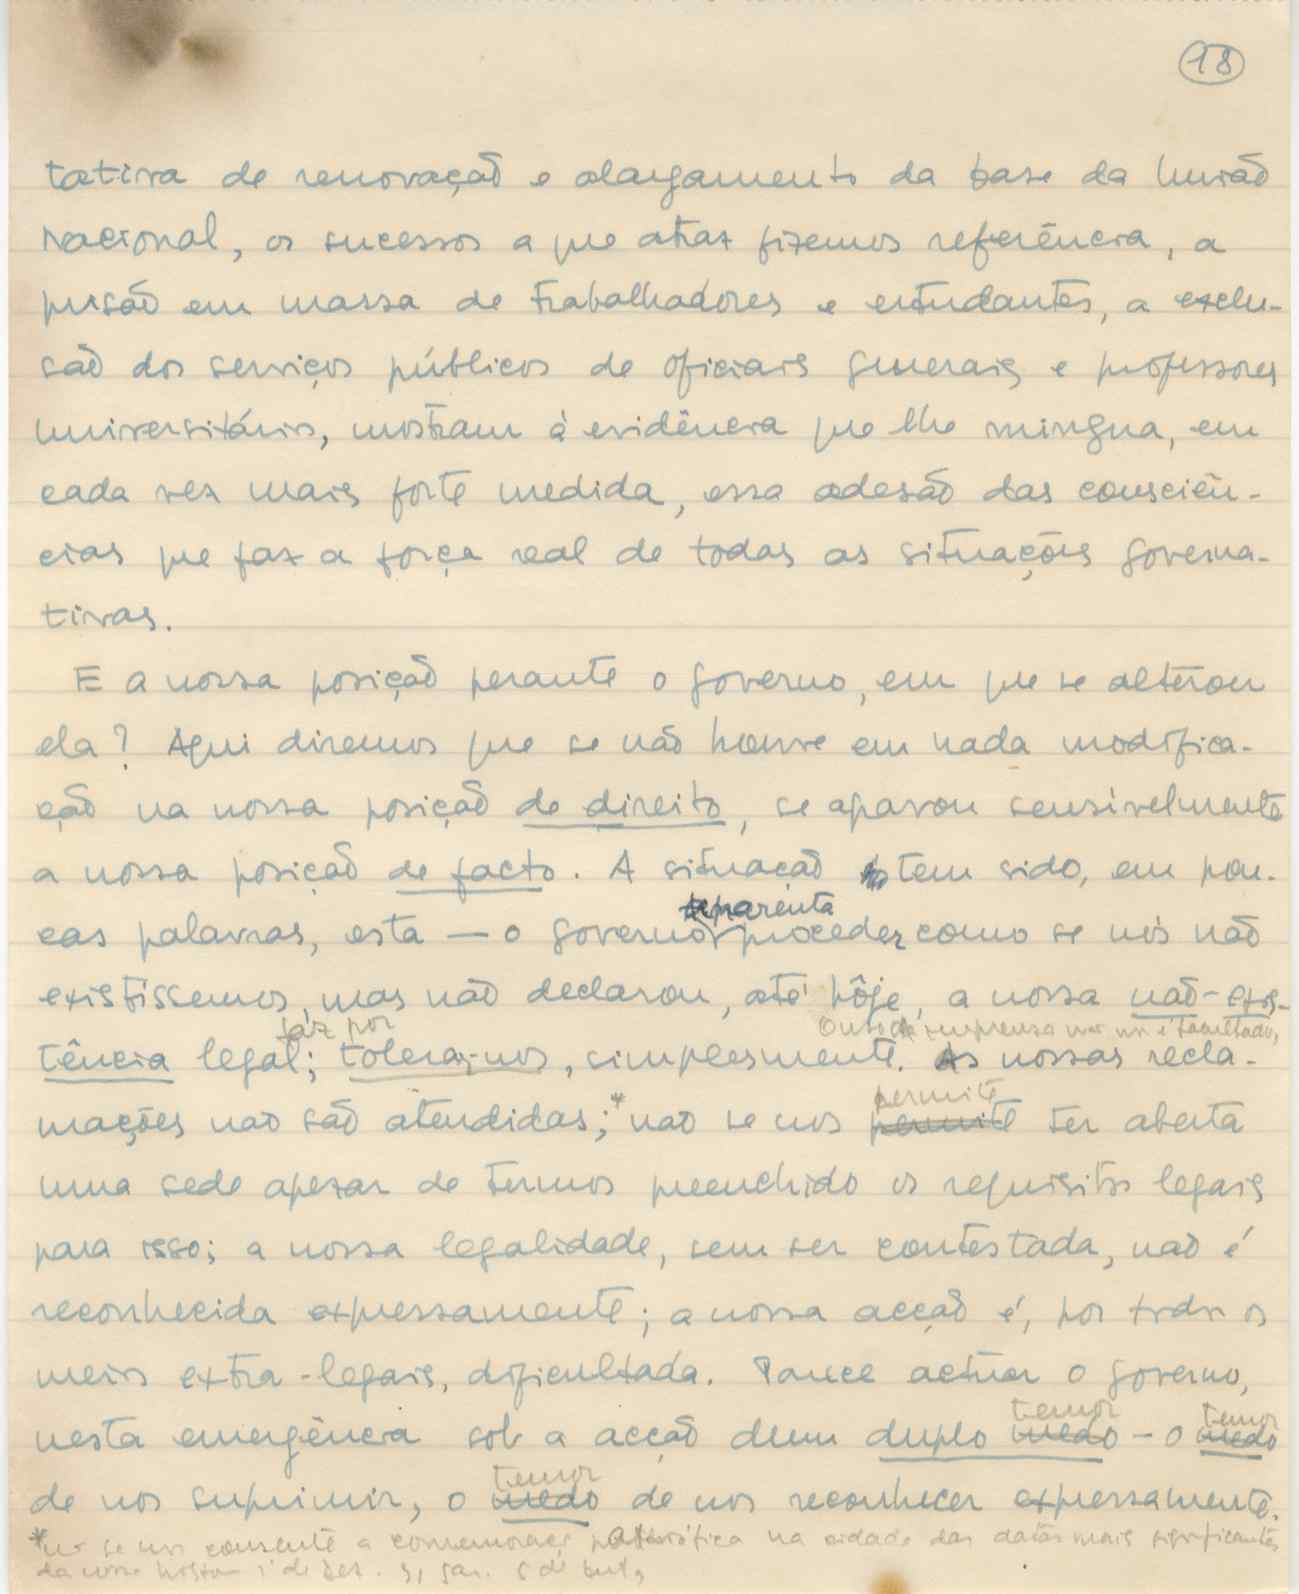 18
tativa de renovação e alargamento da base da União
Nacional, os sucessos a que atraz fizemos referência, a
prisão em massa de trabalhadores e estudantes, a exclu-
são dos serviços públicos de oficiais generais e professores
universitários, mostram à evidência que lhe mingua, em
cada vez mais forte medida, essa adesão das consciên-
cias que faz a força real de todas as situações governa-
tivas.
E a nossa posição perante o governo, em que se alterou
ela? Aqui diremos que se não houve em nada modifica-
ção na nossa posição de direito, se agravou sensivelmente
a nossa posição de facto. A situação tem sido, em pou-
aparenta
cas palavras, esta — o governo proceder como se nós não
existissemos, mas não declarou, até hôje, a nossa não-exis-
faz por imprensa não nos é facultado,
tência legal; tolerar-nos, simplesmente. As nossas recla-
permite
mações não são atendidas;* não se nos permite ter aberta
uma sede apezar de termos preenchido os requisitos legais
para isso; a nossa legalidade, sem ser contestada, não é
reconhecida expressamente; a nossa acção é, por todos os
meios extra-legais, dificultada. Parece actuar o governo,
temor temor
nesta emergência sob a acção dum duplo medo — o medo
temor
de nos suprimir, o medo de nos reconhecer expressamente.
*não se nos consente a comemoração patriótica na cidade das datas mais significantes
da nossa história 1º de Dez. 31 Jan. 5 de Out,